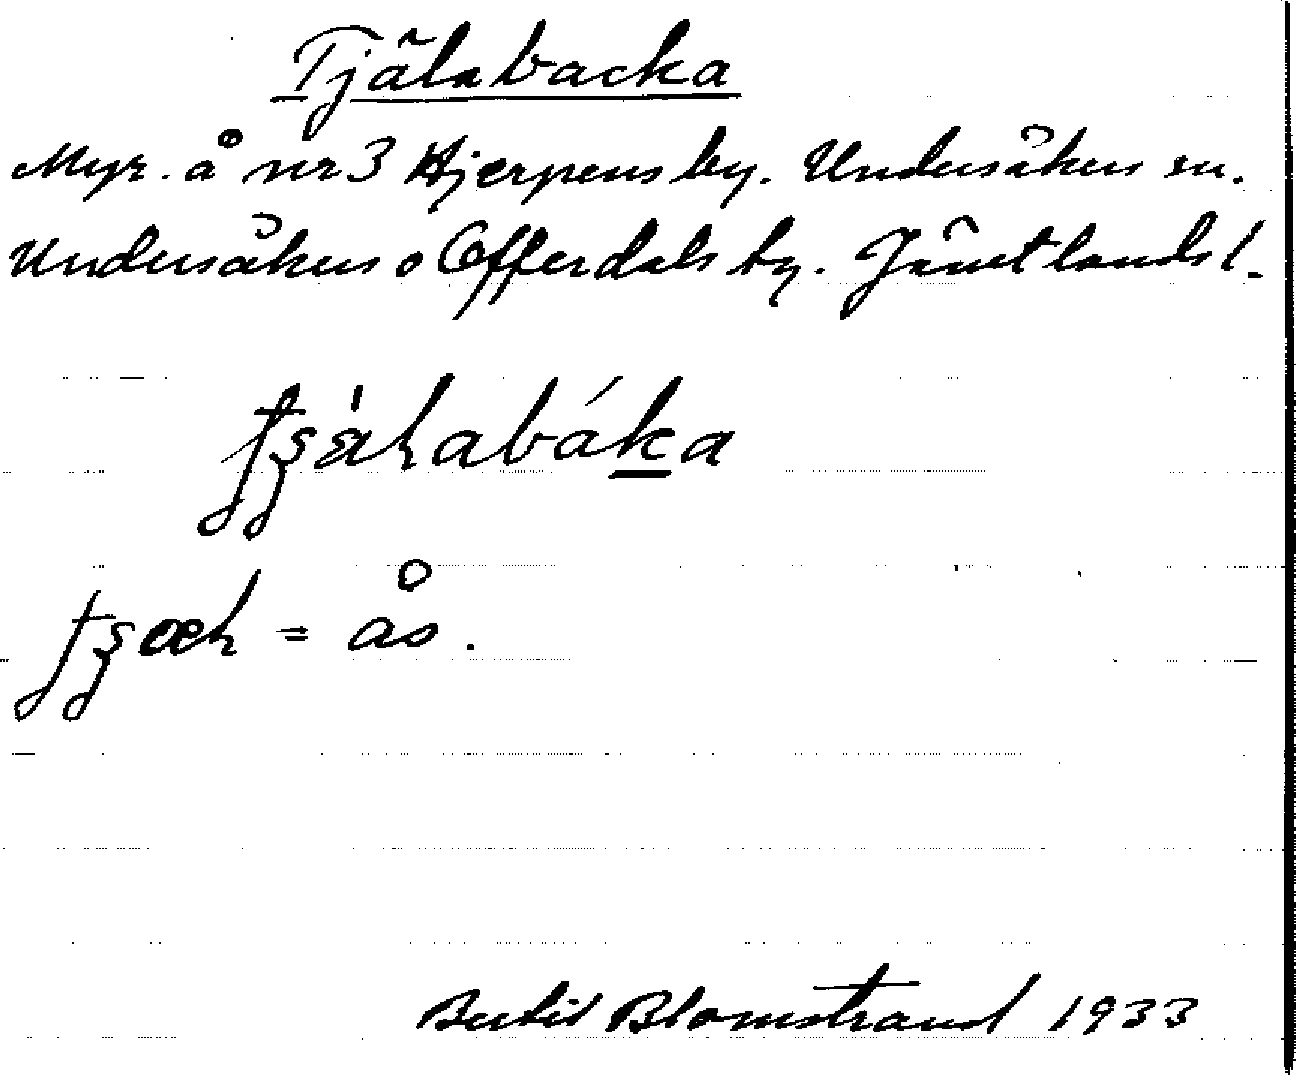 Tjälabacka
Myr. å nr 3 Hjerpens by. Undersåkers sn.
Undersåkers o Offerdals tg. Jämtlands l.
= ås.
Bertil Blomstrand 1933